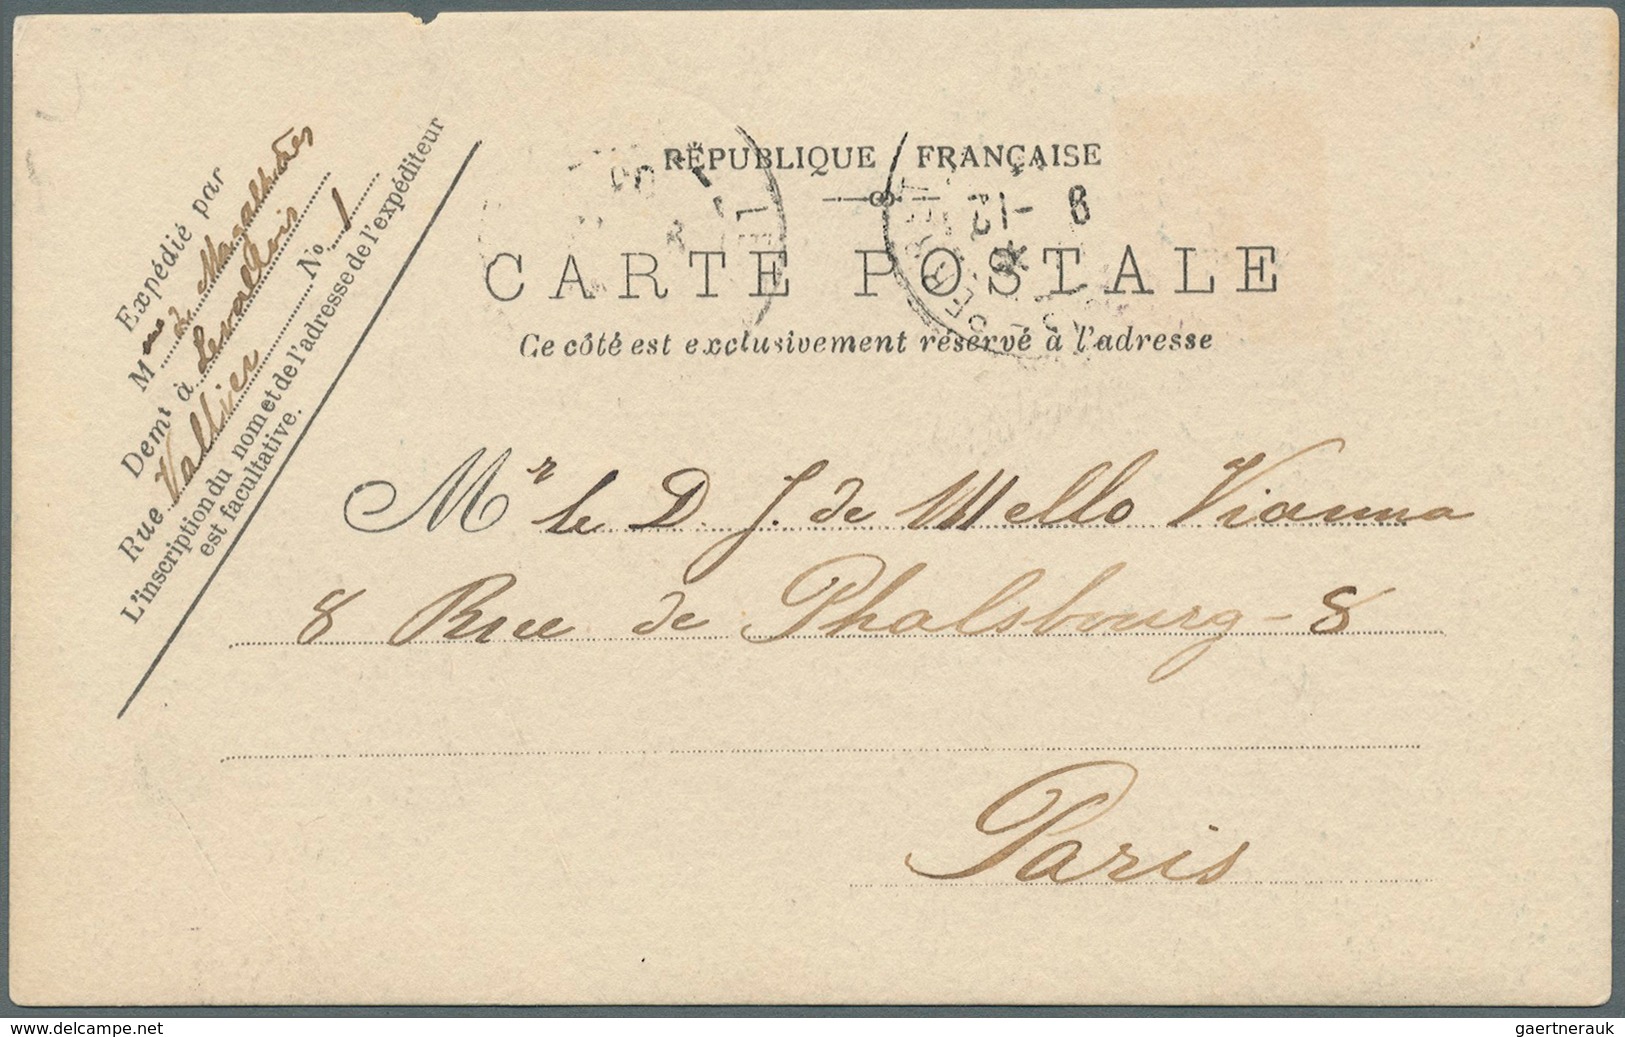 RÉPUBLIQUE FRANÇAISE
CARTE POSTALE
Ce côté est exclusivement réservé à l'adresse
Expédié par
Mme de Magalhães
Demt à Levallois
Rue Vallier No 1
L'inscription du nom et de l'adresse de l'expéditeur
est facultative.
Mr le D. J. de Mello Vianna
8 Rue de Phalsbourg - 8
Paris
www.delcampe.net
gaertnerauk